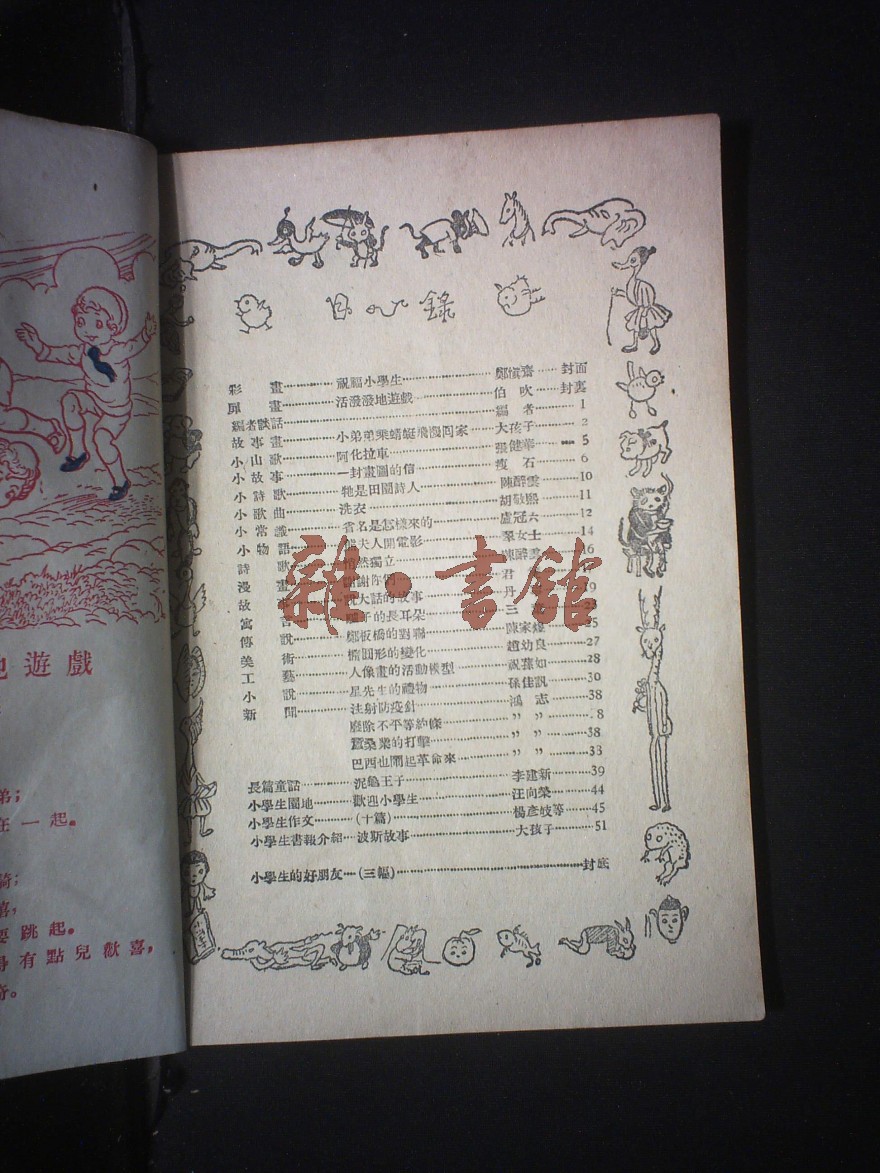 目錄
彩畫 祝福小學生 鄭慎齋 封面
扉畫 活潑潑地遊戲 伯吹 封裏
編者談話 編者 1
故事畫 小弟弟乘蜻蜓飛機回家 大孩子 2
小山歌 阿化拉車 張健華 5
小故事 一封畫圖的信 瘦石 6
小詩歌 牠是田間詩人 陳醉雲 10
小歌曲 洗衣 胡敬熙 11
小常識 省名是怎樣來的 盧冠六 12
小物語 夫人開電影 翠女士 14
詩歌 然獨立 陳醉雲 16
漫畫 謝你 君
故 說大話的故事 丹 19
寓言 的長耳朵 三
傳說 鄭板橋的對聯 陳家 25
美術 橢圓形的變化 趙幼良 27
工藝 人像畫的活動模型 祝 如 28
小說 星先生的禮物 孫佳訊 30
新聞 注射防疫針 鴻志 38
廢除不平等約條 〃 〃 8
蠶桑業的打擊 〃 〃 38
巴西也鬧起革命來 〃 〃 38
長篇童話 泥龜王子 李建新 39
小學生園地 歡迎小學生 汪向榮 44
小學生作文 (十篇) 楊彥岐等 45
小學生書報介紹 波斯故事 大孩子 51
小學生的好朋友 (三幅) 封底
雜·書館
地遊戲
弟;
在一起。
騎;
喜,
要跳起。
有點兒歡喜,
奇。